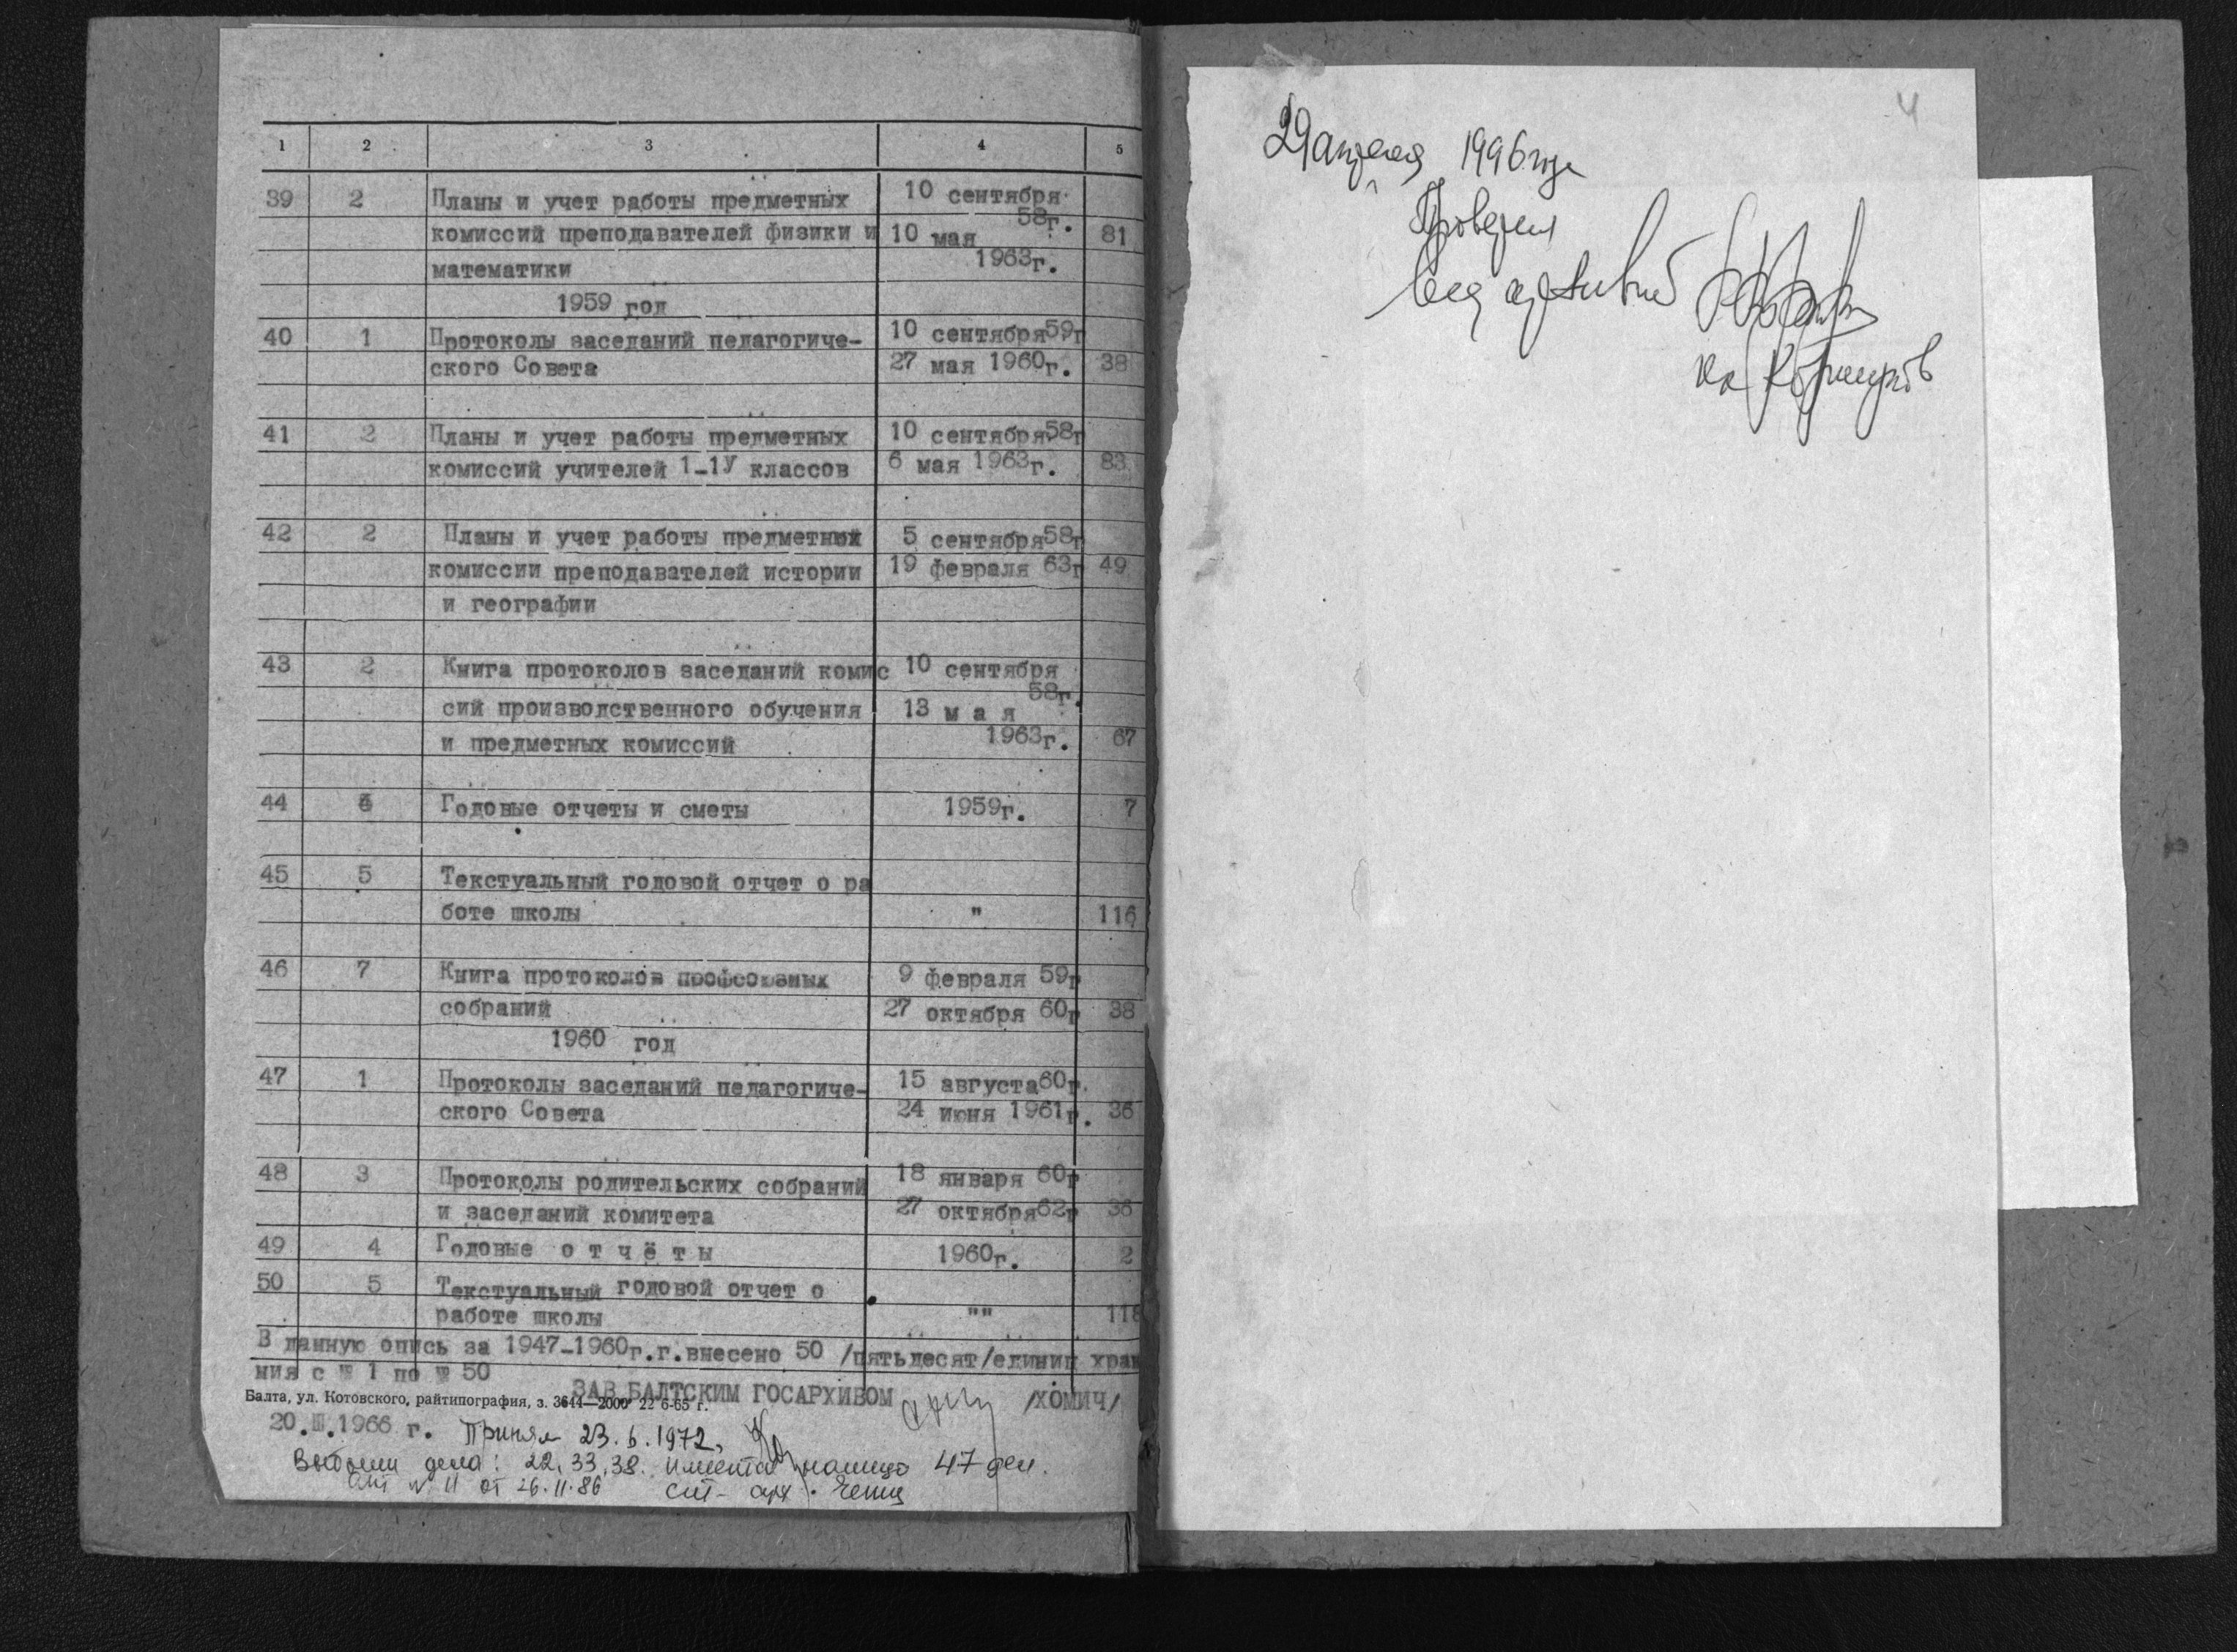 1 2 3 4 5
39 2 Планы и учет работы предметных 10 сентября
58г.
комиссий преподавателей физики и 10 мая 81
математики 1963г.
1959 год
40 1 Протоколы заседаний педагогиче- 10 сентября59г
ского Совета 27 мая 1960г. 38
41 2 Планы и учет работы предметных 10 сентября58г
комиссий учителей 1-1У классов 6 мая 1963г. 83
42 2 Планы и учет работы предметной 5 сентября58г
комиссии преподавателей истории 19 февраля 63г 49
и географии
43 2 Книга протоколов заседаний комис 10 сентября
58г.
сий производственного обучения 13 м а я
и предметных комиссий 1963г. 67
44 6 Годовые отчеты и сметы 1959г. 7
45 5 Текстуальный годовой отчет о ра
боте школы " 116
46 7 Книга протоколов профсоюзных 9 февраля 59г
собраний 27 октября 60г 38
1960 год
47 1 Протоколы заседаний педагогиче- 15 августа60г.
ского Совета 24 июня 1961г. 36
48 3 Протоколы родительских собраний 18 января 60г
и заседаний комитета 27 октября62г 36
49 4 Годовые о т ч ё т ы 1960г. 2
50 5 Текстуальный годовой отчет о
работе школы "" 118
В данную опись за 1947-1960г.г.внесено 50 /пятьдесят/единиц хран
ния с № 1 по № 50
ЗАВ.БАЛТСКИМ ГОСАРХИВОМ /ХОМИЧ/
Балта, ул. Котовского, райтипография, з. 3644—2000 22 6-65 г.
20.Ш.1966 г. Принял 23.6.1972,
Выбыли дела: 22, 33, 38. имеется 47 дел.
Акт № 11 от 26.11.86 ст. арх.
4
29 апреля 1996 года
Проверил